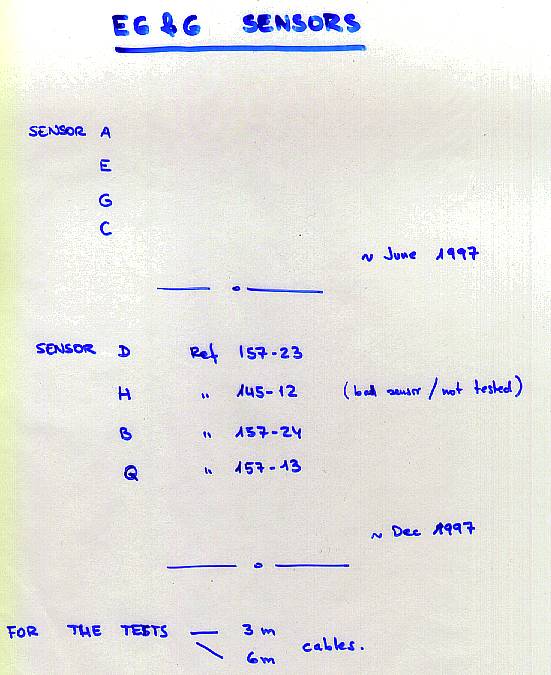 EG&G SENSORS
SENSOR A
E
G
C
~ June 1997
SENSOR D Ref 157-23
H " 145-12 (bad sensor / not tested)
B " 157-24
Q " 157-13
~ Dec 1997
FOR THE TESTS — 3 m
6m cables.